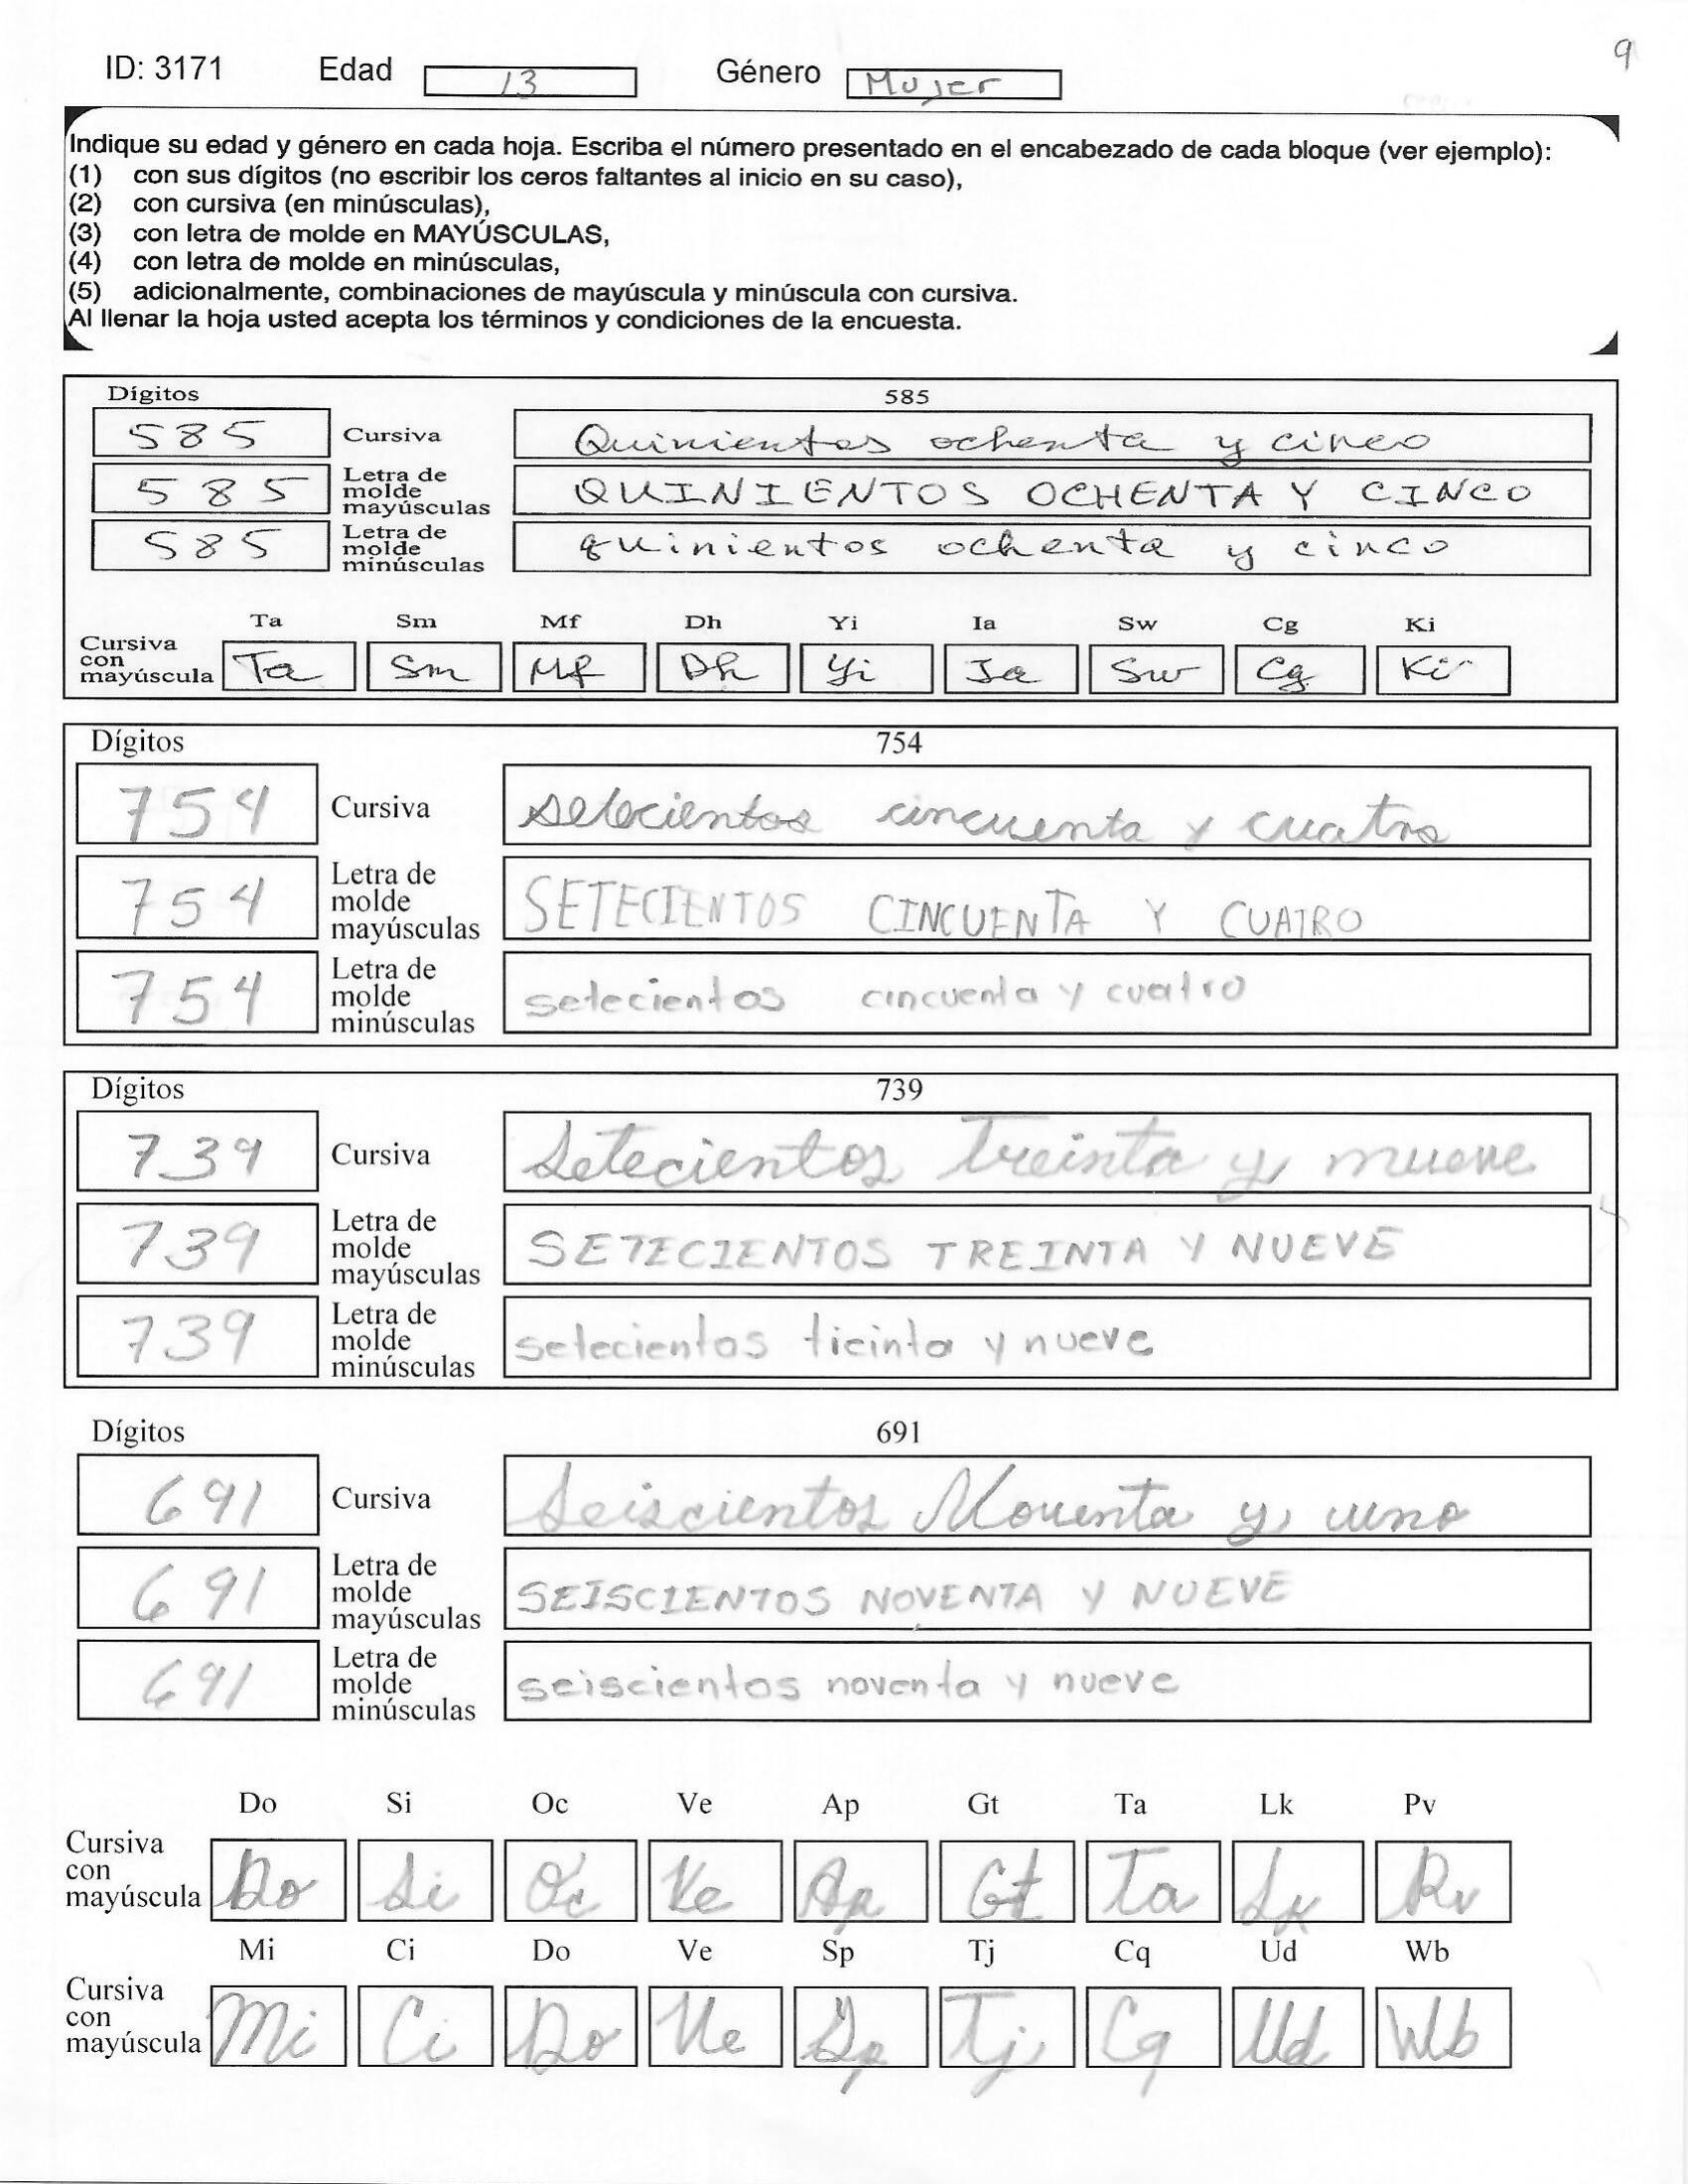 9
ID: 3171 Edad 13 Género Mujer
Indique su edad y género en cada hoja. Escriba el número presentado en el encabezado de cada bloque (ver ejemplo):
(1) con sus dígitos (no escribir los ceros faltantes al inicio en su caso),
(2) con cursiva (en minúsculas),
(3) con letra de molde en MAYÚSCULAS,
(4) con letra de molde en minúsculas,
(5) adicionalmente, combinaciones de mayúscula y minúscula con cursiva.
Al llenar la hoja usted acepta los términos y condiciones de la encuesta.
Dígitos 585
585 Cursiva Quinientos ochenta y cinco
585 Letra de molde mayúsculas QUINIENTOS OCHENTA Y CINCO
585 Letra de molde minúsculas quinientos ochenta y cinco
Ta Sm Mf Dh Yi Ia Sw Cg Ki
Cursiva con mayúscula Ta Sm Mf Dh Yi Ia Sw Cg Ki
Dígitos 754
754 Cursiva setecientos cincuenta y cuatro
754 Letra de molde mayúsculas SETECIENTOS CINCUENTA Y CUATRO
754 Letra de molde minúsculas setecientos cincuenta y cuatro
Dígitos 739
739 Cursiva setecientos treinta y nueve
739 Letra de molde mayúsculas SETECIENTOS TREINTA Y NUEVE
739 Letra de molde minúsculas setecientos treinta y nueve
Dígitos 691
691 Cursiva Seiscientos Noventa y uno
691 Letra de molde mayúsculas SEISCIENTOS NOVENTA Y NUEVE
691 Letra de molde minúsculas seiscientos noventa y nueve
Do Si Oc Ve Ap Gt Ta Lk Pv
Cursiva con mayúscula Do Si Oc Ve Ap Gt Ta Lk Pv
Mi Ci Do Ve Sp Tj Cq Ud Wb
Cursiva con mayúscula Mi Ci Do Ve Sp Tj Cq Ud Wb